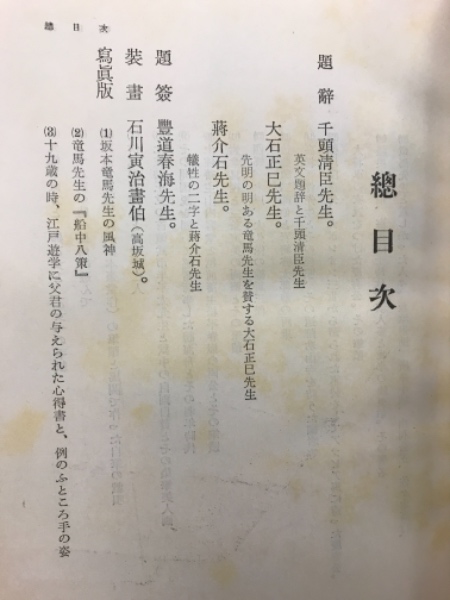 總目次
總目次
題辭 千頭清臣先生。
英文題辞と千頭清臣先生
大石正巳先生。
先明の明ある竜馬先生を賛する大石正巳先生
蔣介石先生。
犠牲の二字と蔣介石先生
題簽 豐道春海先生。
裝畫 石川寅治畫伯(高坂城)。
寫眞版
(1)坂本竜馬先生の風神
(2)竜馬先生の『船中八策』
(3)十九歳の時、江戸遊学に父君の与えられた心得書と、例のふところ手の姿